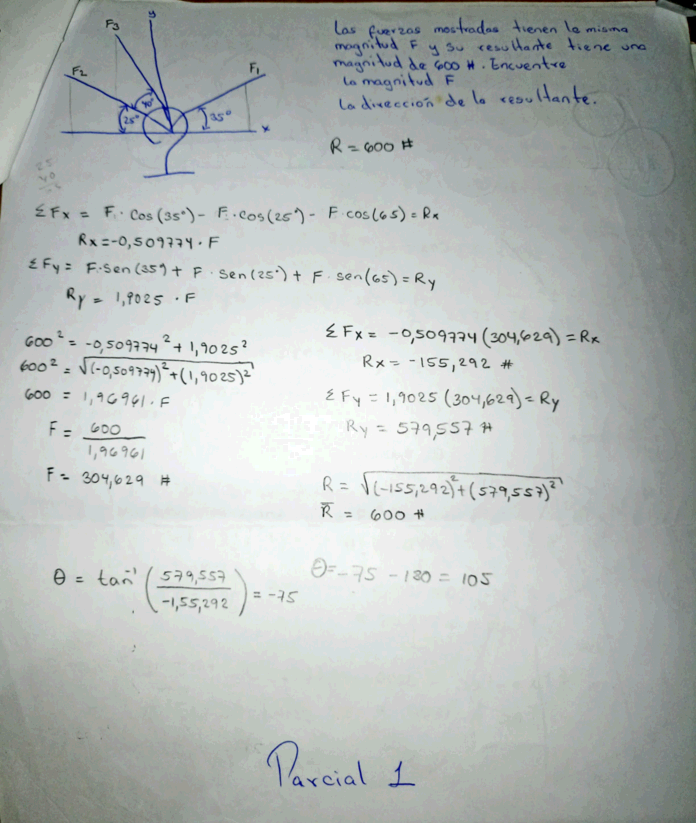 y
F3
F2
F1
40°
25°
35°
x
Las fuerzas mostradas tienen la misma
magnitud F y su resultante tiene una
magnitud de 600 #. Encuentre
La magnitud F
La dirección de la resultante.
R = 600 #
25
40
ΣFx = F · Cos (35°) - F · cos (25°) - F cos (65) = Rx
Rx = -0,509774 · F
ΣFy = F · sen (35°) + F · sen (25°) + F · sen (65) = Ry
Ry = 1,9025 · F
600² = -0,509774² + 1,9025²
600² = √(-0,509774)² + (1,9025)²
600 = 1,96961 · F
F = 600
1,96961
F = 304,629 #
ΣFx = -0,509774 (304,629) = Rx
Rx = -155,292 #
ΣFy = 1,9025 (304,629) = Ry
Ry = 579,557 #
R = √(-155,292)² + (579,557)²
R̅ = 600 #
θ = tan⁻¹ (579,557 / -1,55,292) = -75
θ = -75 - 180 = 105
Parcial 1